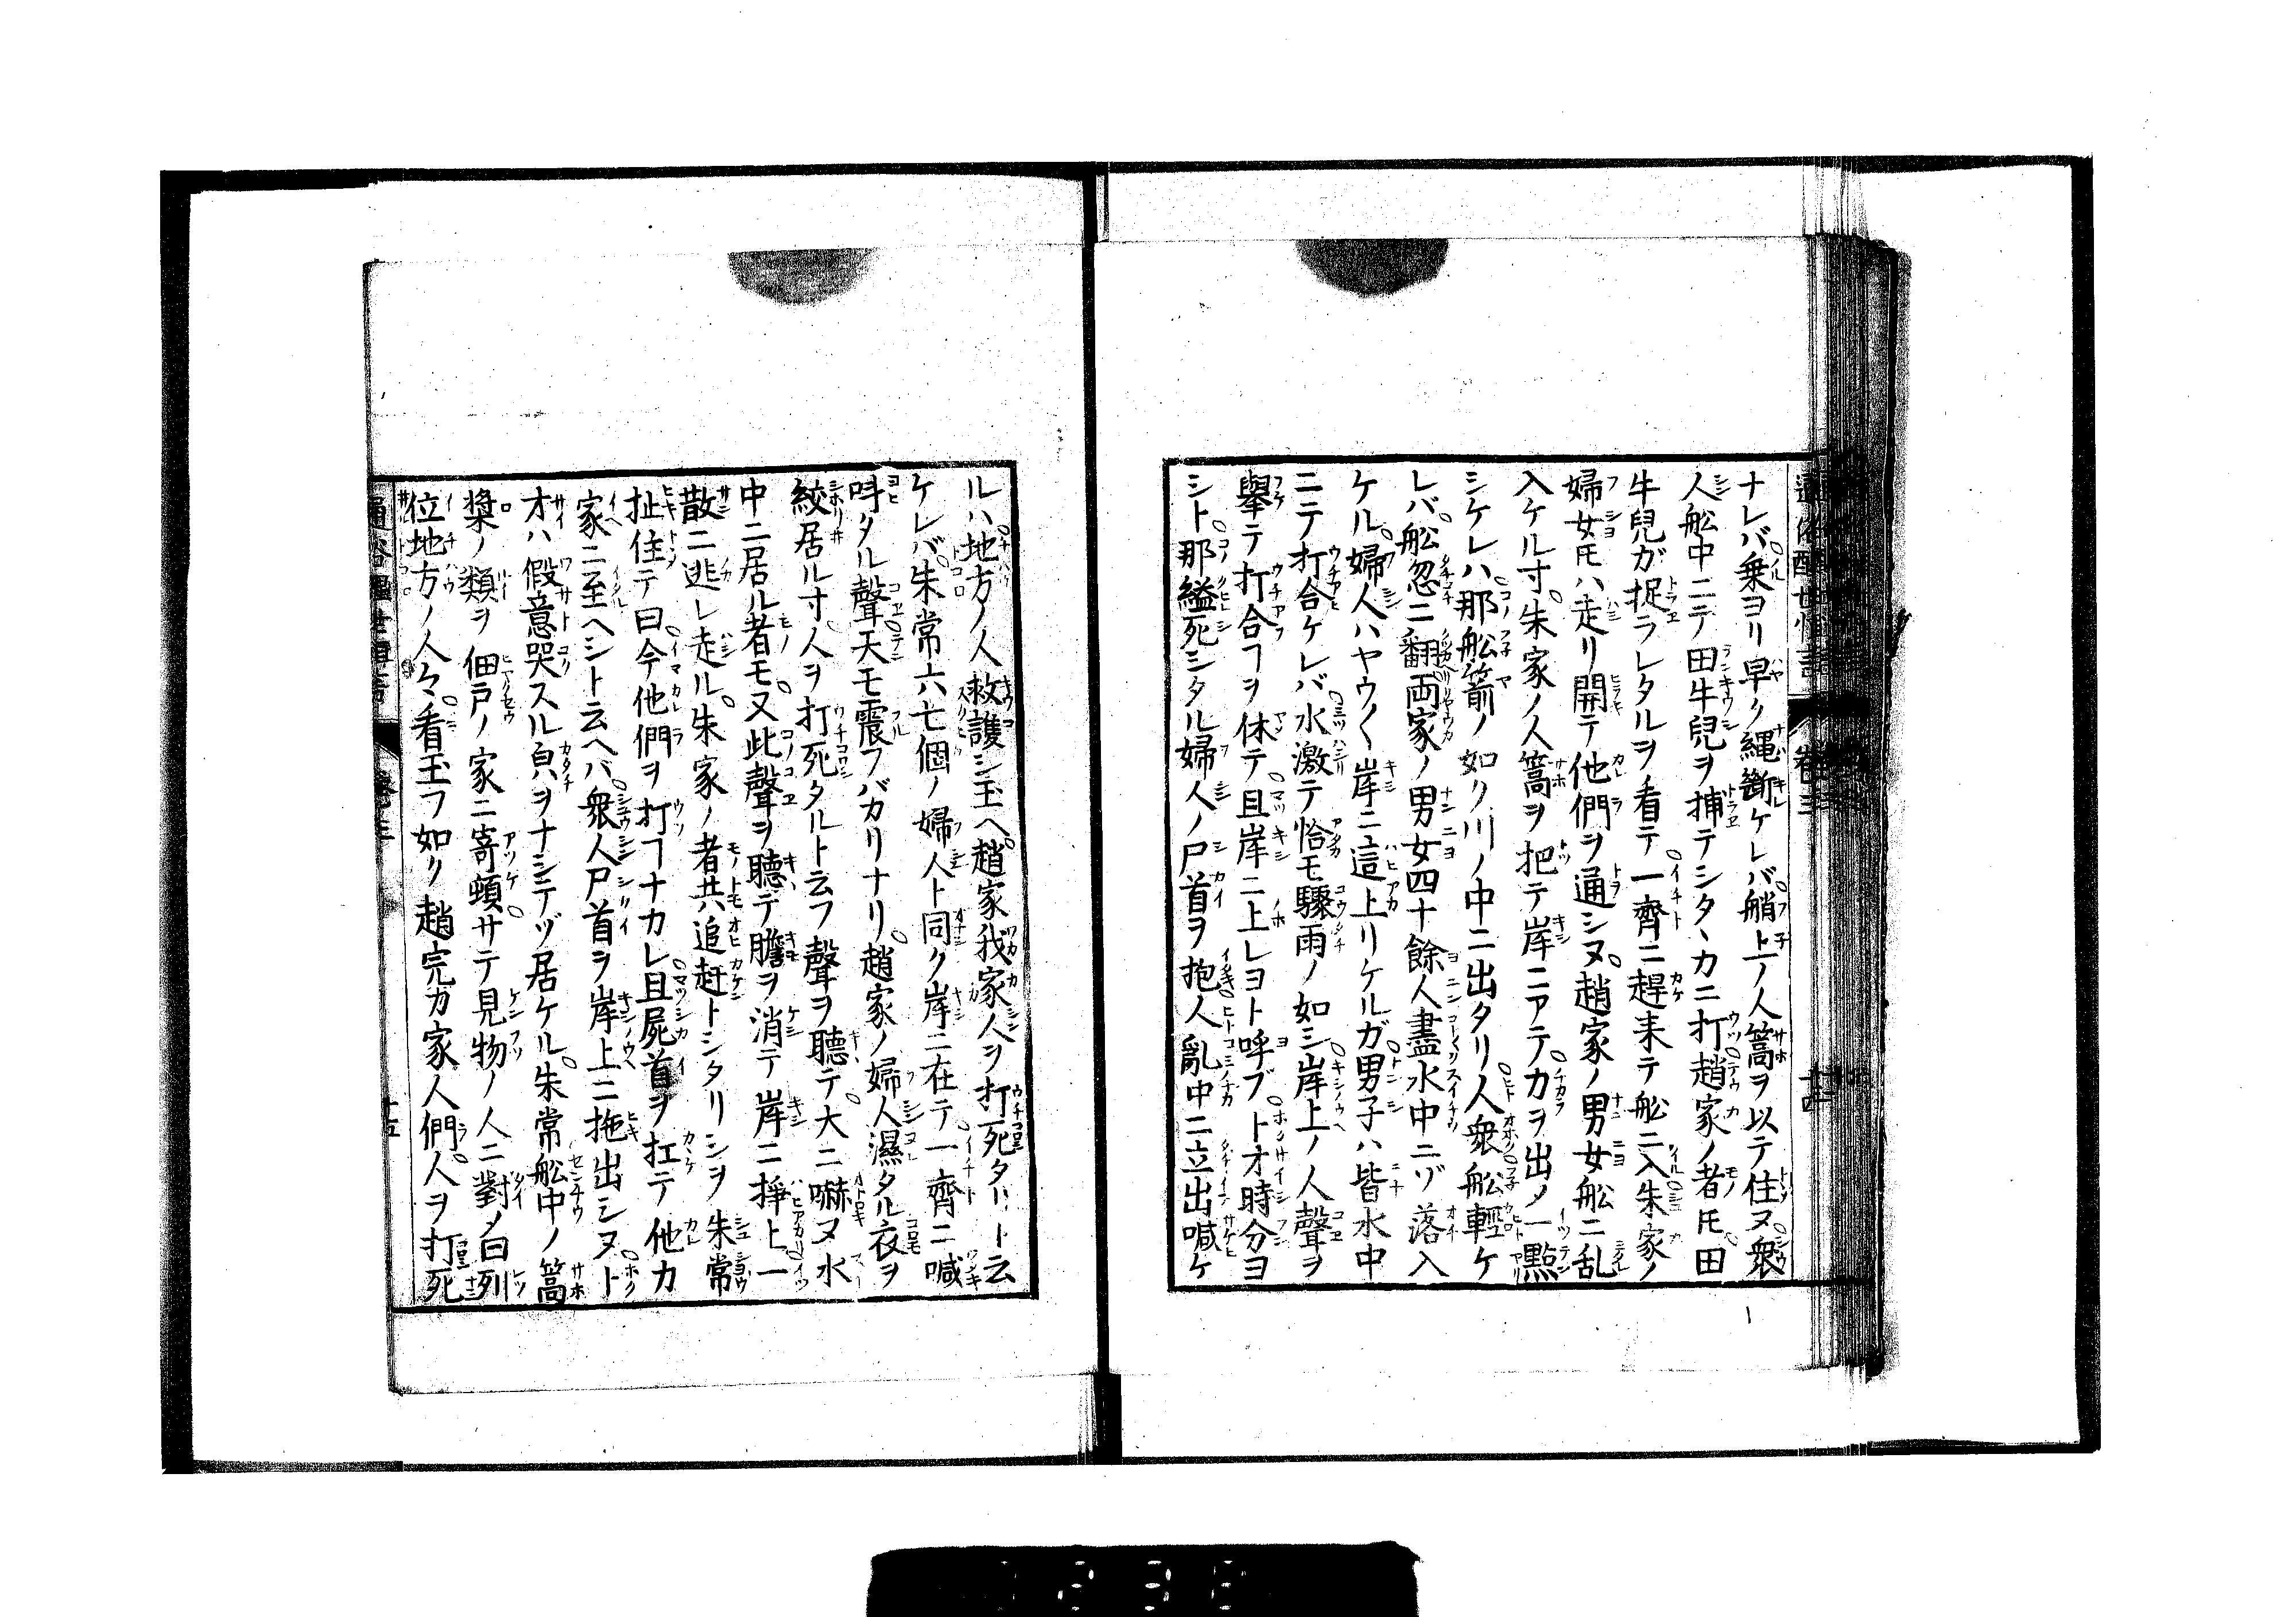 ナレバ乗ヨリ早ク縄斷ケレバ艄上ノ人篙ヲ以テ住ヌ衆
人舩中ニテ田牛兒ヲ捕テシタヽカニ打趙家ノ者𪜈田
牛兒ガ捉ラレタルヲ看テ一齊ニ趕来テ舩ニ入朱家ノ
婦女𪜈ハ走リ開テ他們ヲ通シヌ趙家ノ男女舩ニ乱
入ケル寸朱家ノ人篙ヲ把テ岸ニアテ力ヲ出メ一點
シケレハ那舩箭ノ如リ川ノ中ニ出タリ人衆舩輕ケ
レバ舩忽ニ翻両家ノ男女四十餘人盡水中ニゾ落入
ケル婦人ハヤウ〱岸ニ這上リケルガ男子ハ皆水中
ニテ打合ケレバ水激テ恰モ驟雨ノ如シ岸上ノ人聲ヲ
擧テ打合フヲ休テ且岸ニ上レヨト呼ブトオ時分ヨ
シト那縊死シタル婦人ノ尸首ヲ抱人亂中ニ立出喊ケ
ルハ地方ノ人救護シ玉ヘ趙家我家人ヲ打死タリト云
ケレバ朱常六七個ノ婦人ト同ク岸ニ在テ一齊ニ喊
呌タル聲天モ震フバカリナリ趙家ノ婦人濕タル衣ヲ
絞居ル寸人ヲ打死タルト云フ聲ヲ聽テ大ニ嚇ヌ水
中ニ居ル者モ又此聲ヲ聽テ膽ヲ消テ岸ニ掙上一
散ニ逃レ走ル朱家ノ者共追赶トシタリシヲ朱常
扯住テ曰今他們ヲ打ヿナカレ且屍首ヲ扛テ他カ
家ニ至ヘシト云ヘバ衆人尸首ヲ岸上ニ拖出シヌト
オハ假意哭スル㒵ヲナシテゾ居ケル朱常舩中ノ篙
槳ノ類ヲ佃戸ノ家ニ寄頓サテ見物ノ人ニ對メ曰列
位地方ノ人々看玉フ如ク趙完カ家人們人ヲ打死